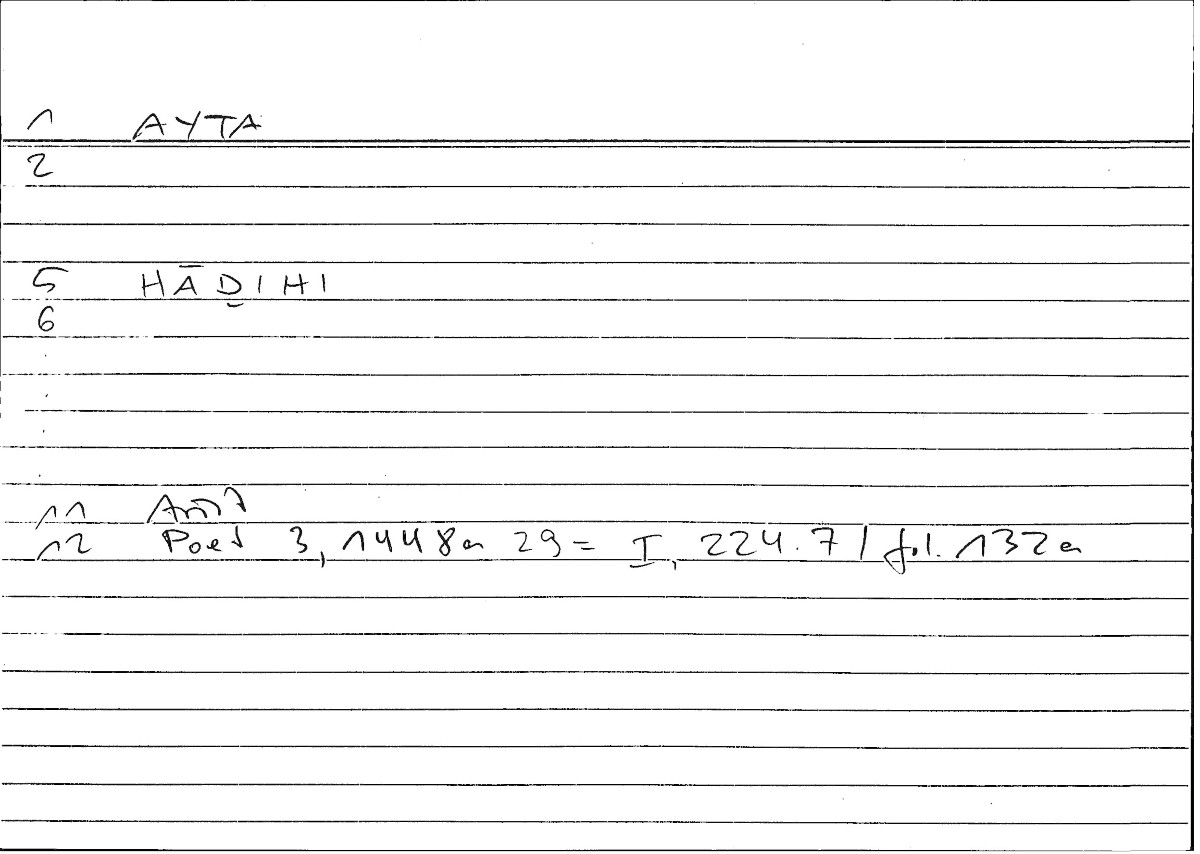 1 ΑΥΤΑ
2
5 HĀḎIHI
6
.
.
.
.
11 Arist
12 Poet 3, 1448a 29 = I, 224.7 / fol. 132a